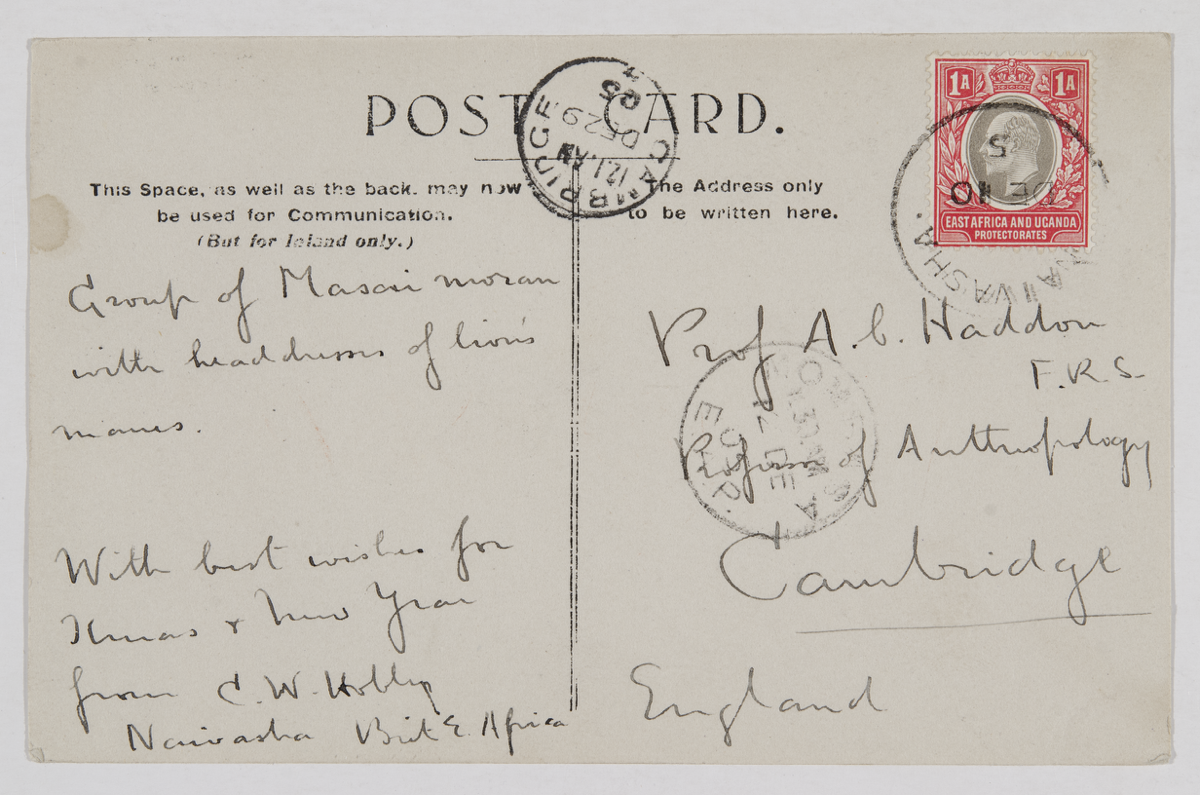 POST CARD.
This Space, as well as the back, may now
be used for Communication.
(But for Inland only.)
The Address only
to be written here.
CAMBRIDGE
12.1 AM
DE 29
05
1A 1A
EAST AFRICA AND UGANDA
PROTECTORATES
NAIVASHA.
DE 10
5
Group of Masai moran
with headdresses of lion's
manes.
With best wishes for
Xmas & New Year
from C. W. Hobley
Naivasha Brit E. Africa
Prof A. C. Haddon
F.R.S.
Professor of Anthropology
Cambridge
England
MOMBASA
12 DE